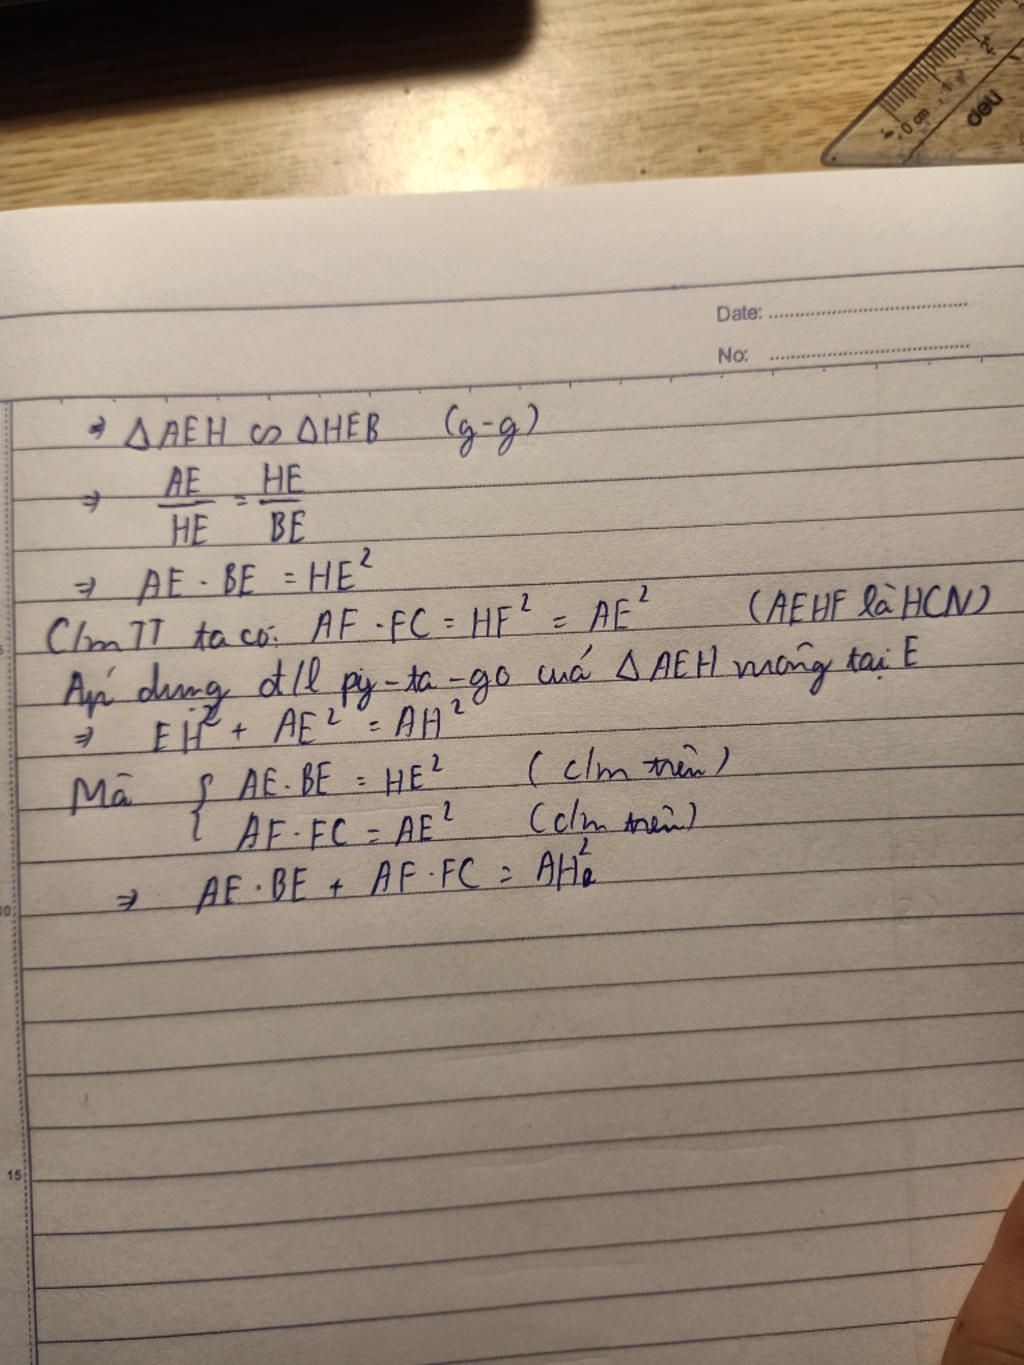 deli
0 cm 1 2
Date:
No:
⇒ ΔAEH ∽ ΔHEB (g-g)
⇒ AE/HE = HE/BE
⇒ AE . BE = HE²
C/m TT ta có: AF . FC = HF² = AE² (AEHF là HCN)
Áp dụng đ/l py-ta-go cuả Δ AEH vuông tại E
⇒ EH² + AE² = AH²
Mà { AE . BE = HE² (c/m trên)
AF . FC = AE² (c/m trên)
⇒ AE . BE + AF . FC = AH²
10
15